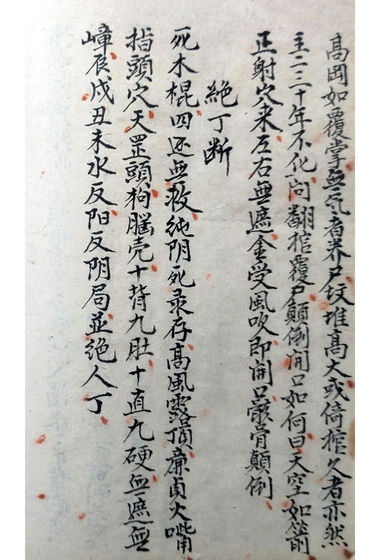 高岡如覆掌無氣者养尸坟堆高大或倚棺久者亦然
主二三十年不化问翻棺覆尸顛倒開口如何曰天空如箭
正射穴来左右無遮金受風吹即開口骸骨顛倒
絶丁断
死木棍四还無救纯阴死录存高風露顶亷貞火嘴
指頭穴天罡頭狗腦壳十背九肚十直九硬無遮無
嶂辰戌丑未水反阳反阴局並绝人丁